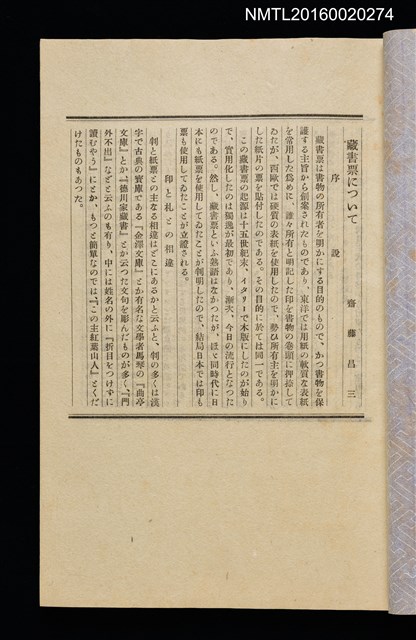 NMTL20160020274
藏書票について
齋藤昌三
序説
藏書票は書物の所有者を明かにする目的のもので、かつ書物を保
護する主旨から創案されたものであり、東洋では用紙の軟質な表紙
を常用した爲めに、誰々所有と明記した印を書物の卷頭に押捺して
ゐたが、西歐では硬質の表紙を使用したので、勢ひ所有主を明かに
した紙片の票を貼付したのである。その目的に於ては同一である。
この藏書票の起源は十五世紀末、イタリーで木版にしたのが始り
で、實用化したのは獨逸が最初であり、漸次、今日の流行となつた
のである。然し、藏書票といふ熟語はなかつたが、ほゞ同時代に日
本にも紙票を使用してゐたことが判明したので、結局日本では印も
票も使用してゐたことが立證される。
印と札との相違
判と紙票との主なる相違はどこにあるかと云ふと、判の多くは漢
字で古典の寶庫である『金澤文庫』とか有名な文學者馬琴の『曲亭
文庫』とか、『德川家藏書』とか云つた文句を彫んだものが多く、『門
外不出』などと云ふのも有り、中には姓名の外に『折目をつけずに
讀むやう』にとか、もつと簡單なのでは、『この主紅葉山人』とくだ
けたものもあつた。